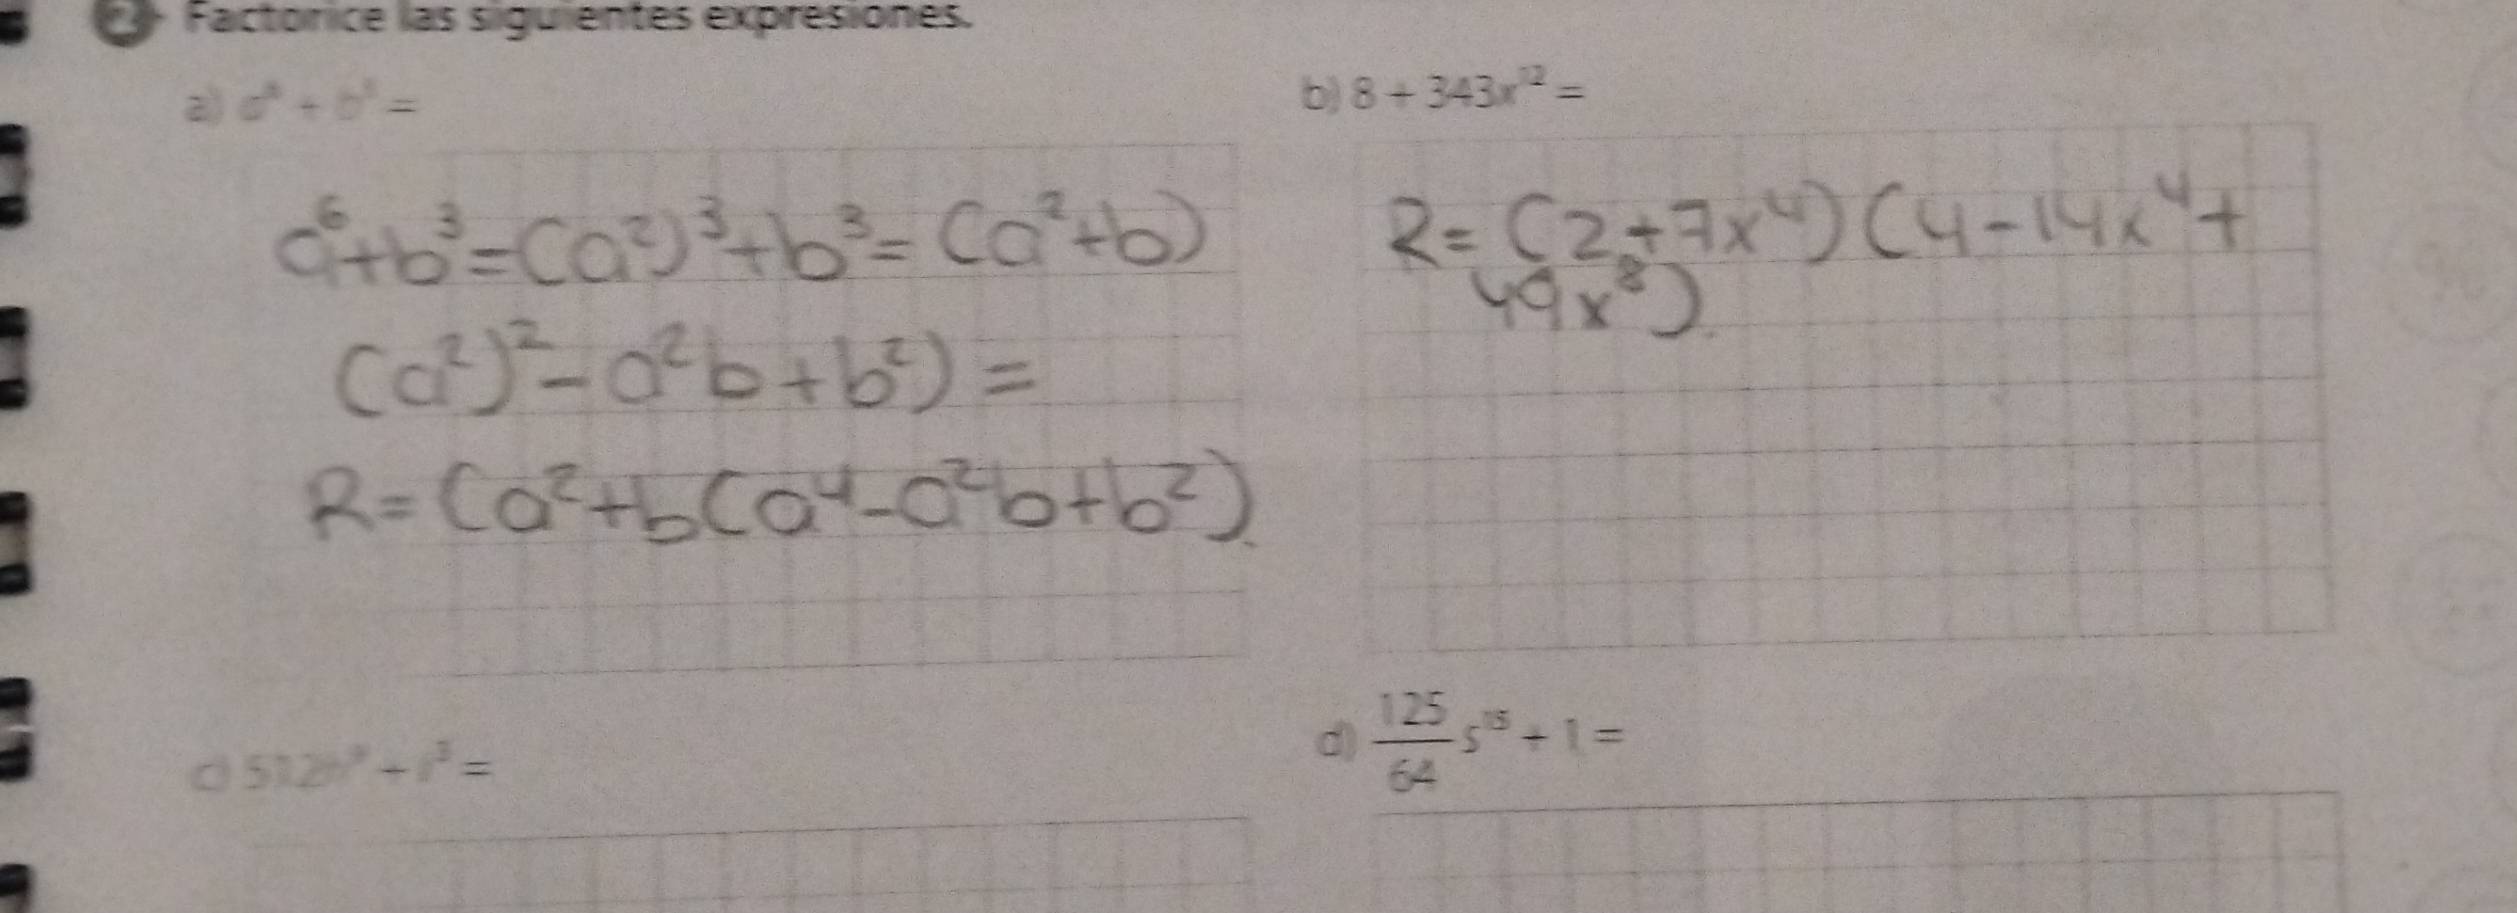 2 Factorice las siguientes expresiones.
a) a⁶ + b³ =
a⁶+b³=(a²)³+b³=(a²+b)
(a²)²-a²b+b²)=
R=(a²+b(a⁴-a²b+b²).
b) 8 + 343x¹² =
R=(2+7x⁴)(4-14x⁴+
49x⁸).
c) 512 + =
d) 125/64 s¹⁵ + 1 =